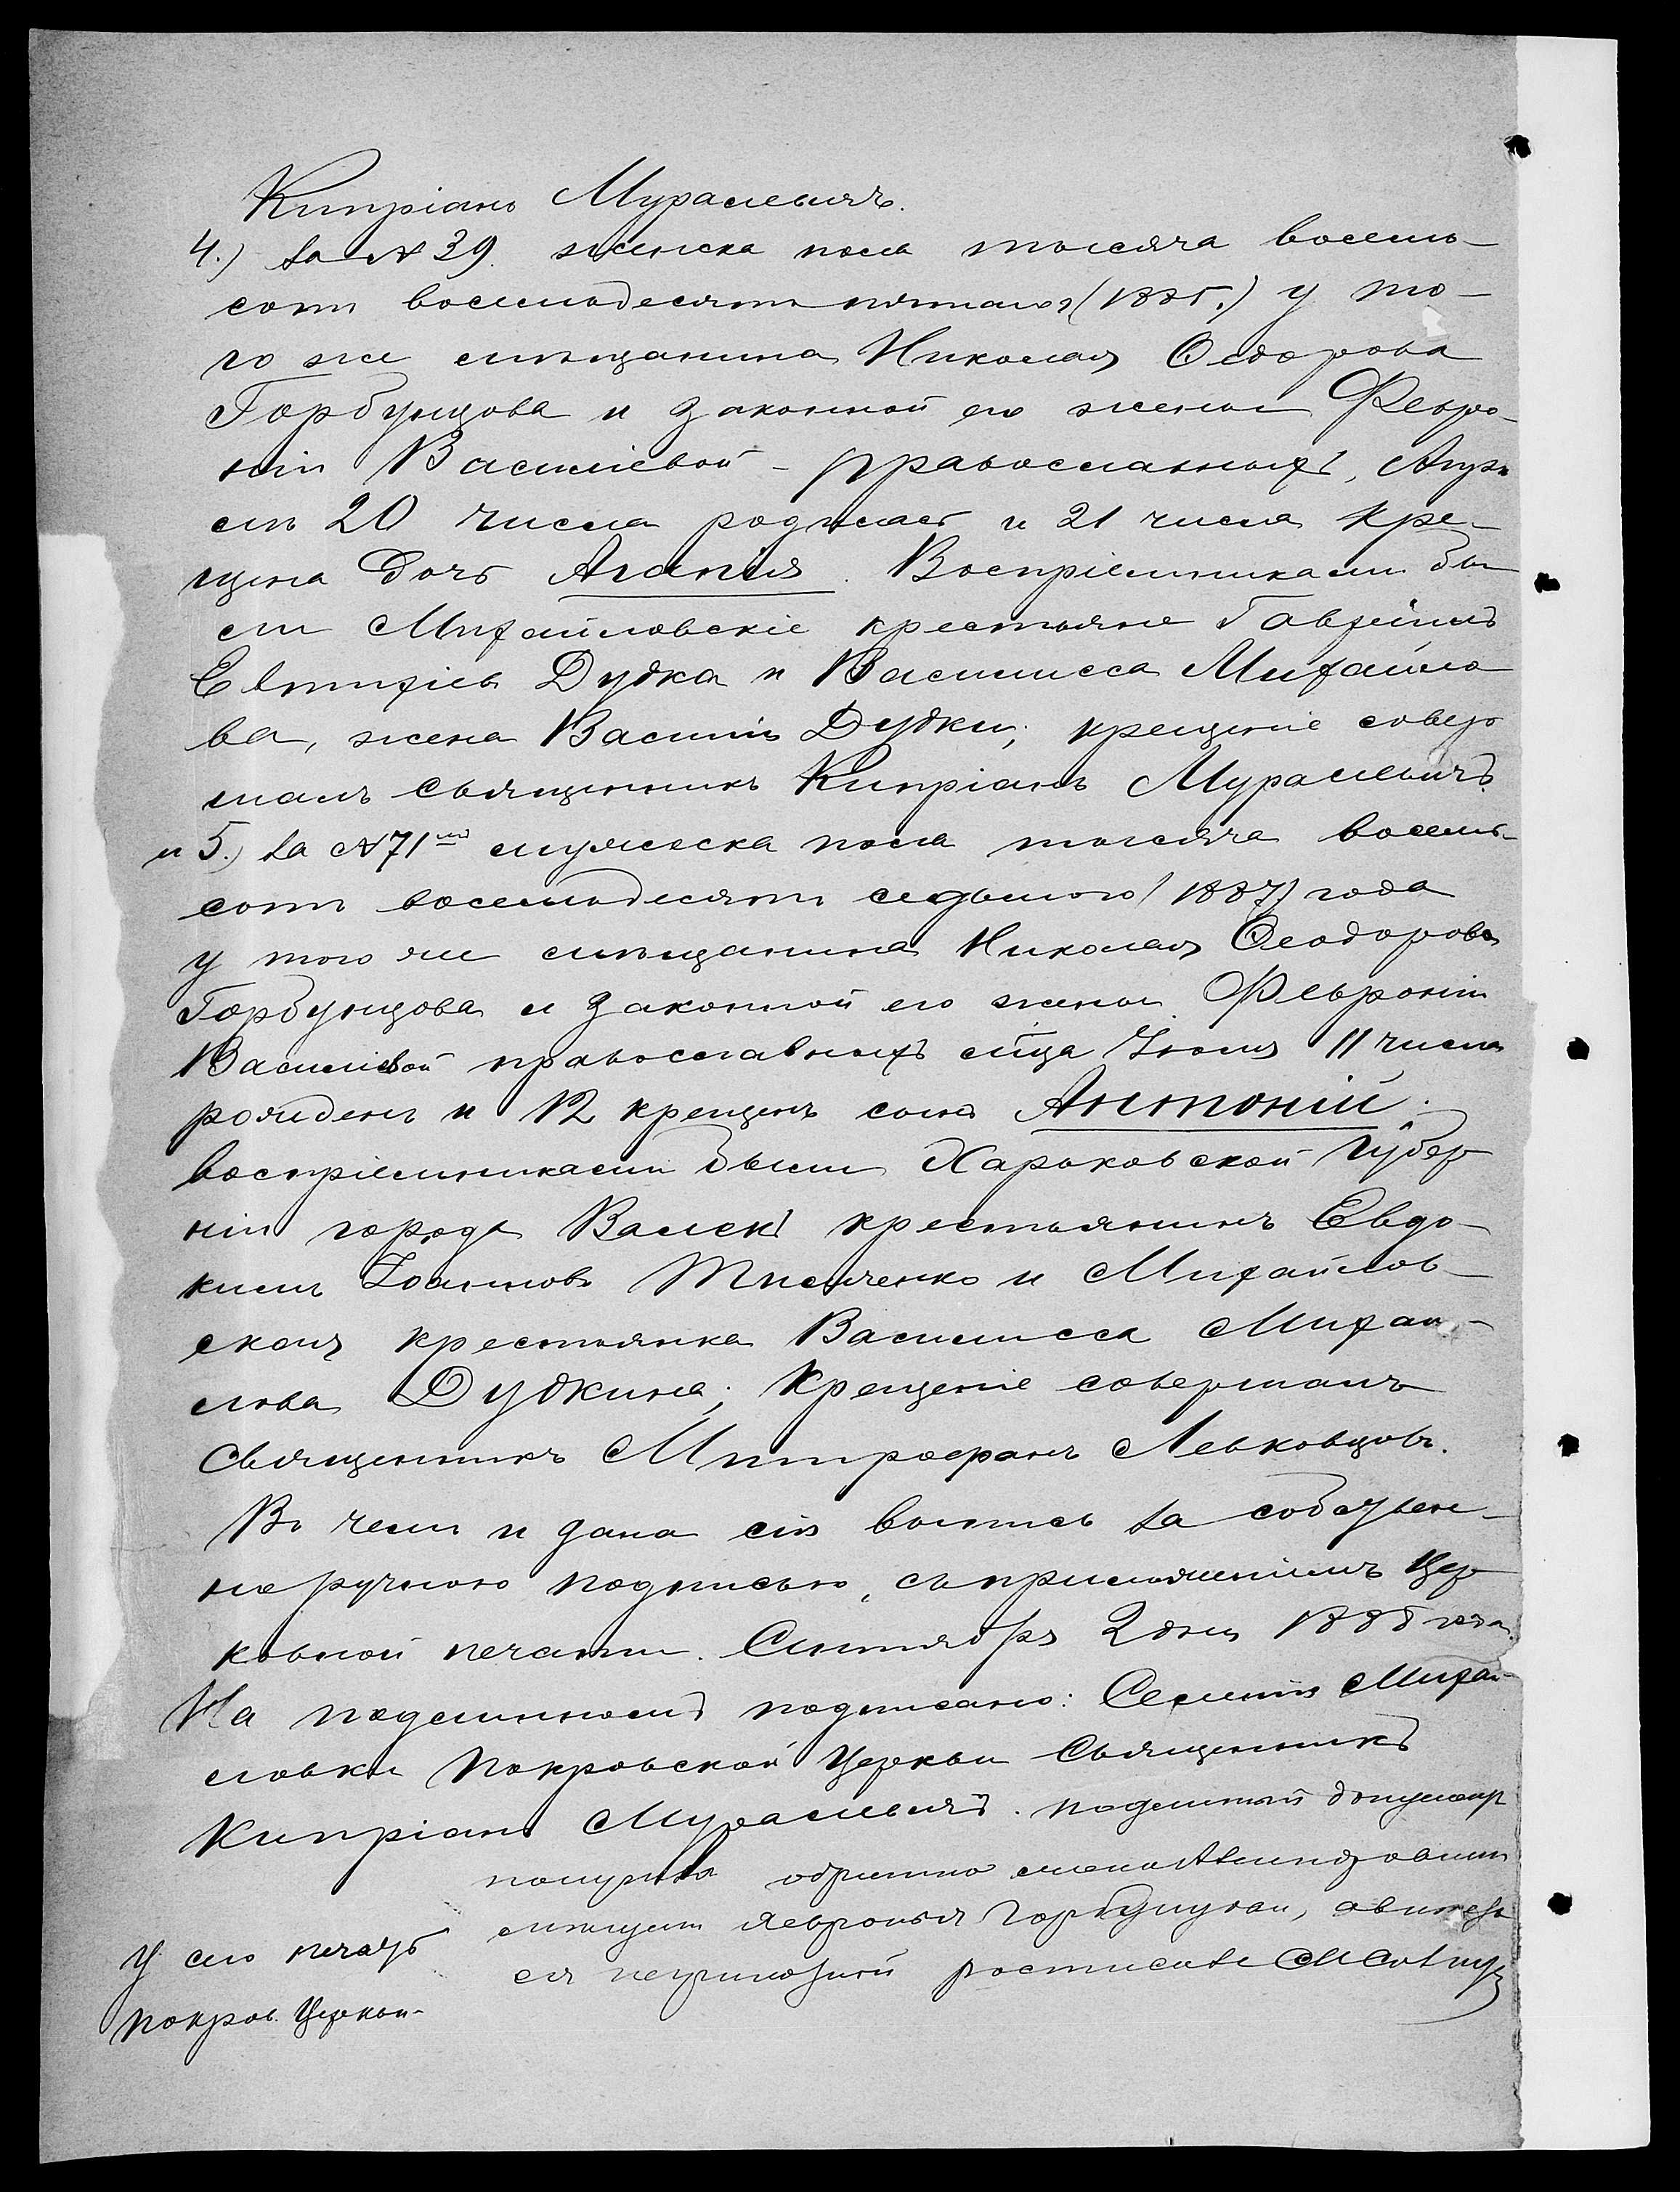 Кипріанъ Муралевичъ.
4.) За № 39. женска пола тысяча восемь-
сотъ восемьдесятъ пятаго (1885.) у то-
го же мѣщанина Николая Ѳедорова
Горбунцова и законной его жены Февро-
ніи Василіевой - православныхъ, Апрѣ
ля 20 числа родилась и 21 числа кре-
щена дочь Агапія. Воспріемниками бы
ли Михайловскіе крестьяне Гавріилъ
Евтихіевъ Дудка и Василисса Михайло
ва, жена Василія Дудки; крещеніе совер
шалъ священникъ Кипріанъ Муралевичъ.
и 5.) За № 71мъ мужеска пола тысяча восемь-
сотъ восемьдесятъ седьмого (1887) года
у того же мѣщанина Николая Ѳеодорова
Горбунцова и законной его жены Февроніи
Василіевой православныхъ м-ца Іюля 11 числа
рожденъ и 12 крещенъ сынъ Антоній.
воспріемниками были Харьковской губер
ніи города Валокъ крестьянинъ Евдо-
кимъ Іоанновъ Тимченко и Михайлов-
ская крестьянка Василисса Михай-
лова Дудкина; Крещеніе совершалъ
Священникъ Митрофанъ Левковцовъ.
Въ чемъ и дана сія выпись за собствен-
норучною подписью, съ приложеніемъ Цер
ковной печати. Сентября 2 дня 1888 года.
На подлинномъ подписано: Селенія Михай-
ловки Покровской Церкви Священникъ
Кипріанъ Муралевичъ. подлиный документ
получила обратно
Февронья Горбунцова, а вместо
ея неграмотной росписался
У сего печать
Покров. Церкви.